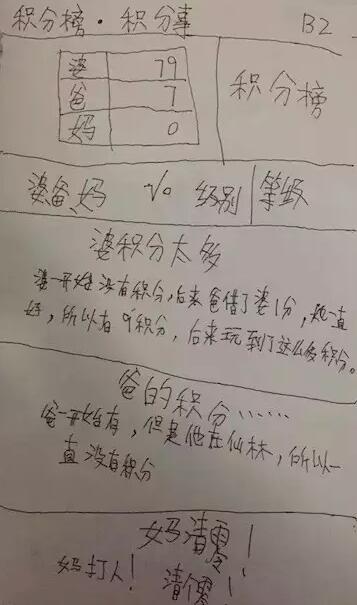 积分榜·积分事 B2
婆 79
爸 7
妈 0
积分榜
婆爸、妈 级别 等级
婆积分太多
婆一开始没有积分,后来爸借了婆1分,她一直
好,所以有 积分,后来玩到了这么多积分。
爸的积分……
爸一开始有,但是他在仙林,所以一
直没有积分
妈清零!
妈打人! 清零!